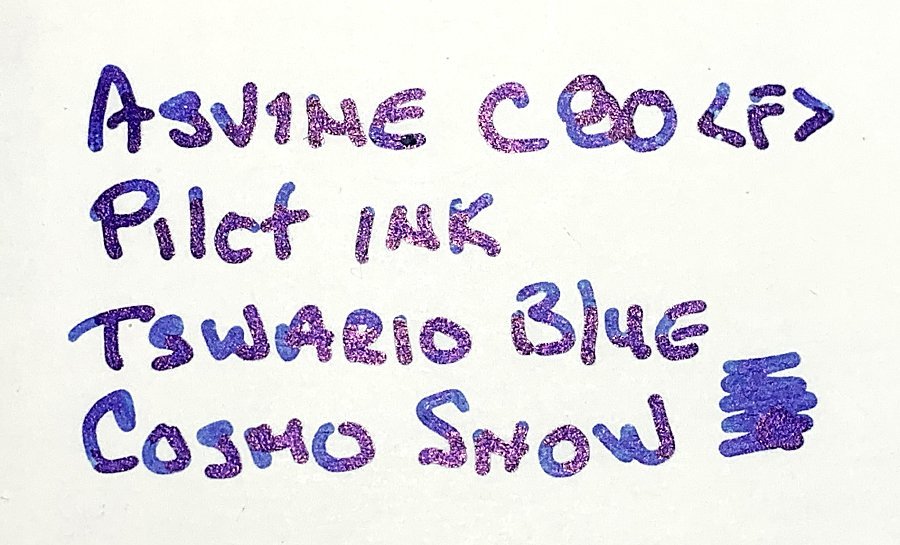 ASVINE C80 <F>
Pilot INK
TSWARIO Blue
Cosmo Snow